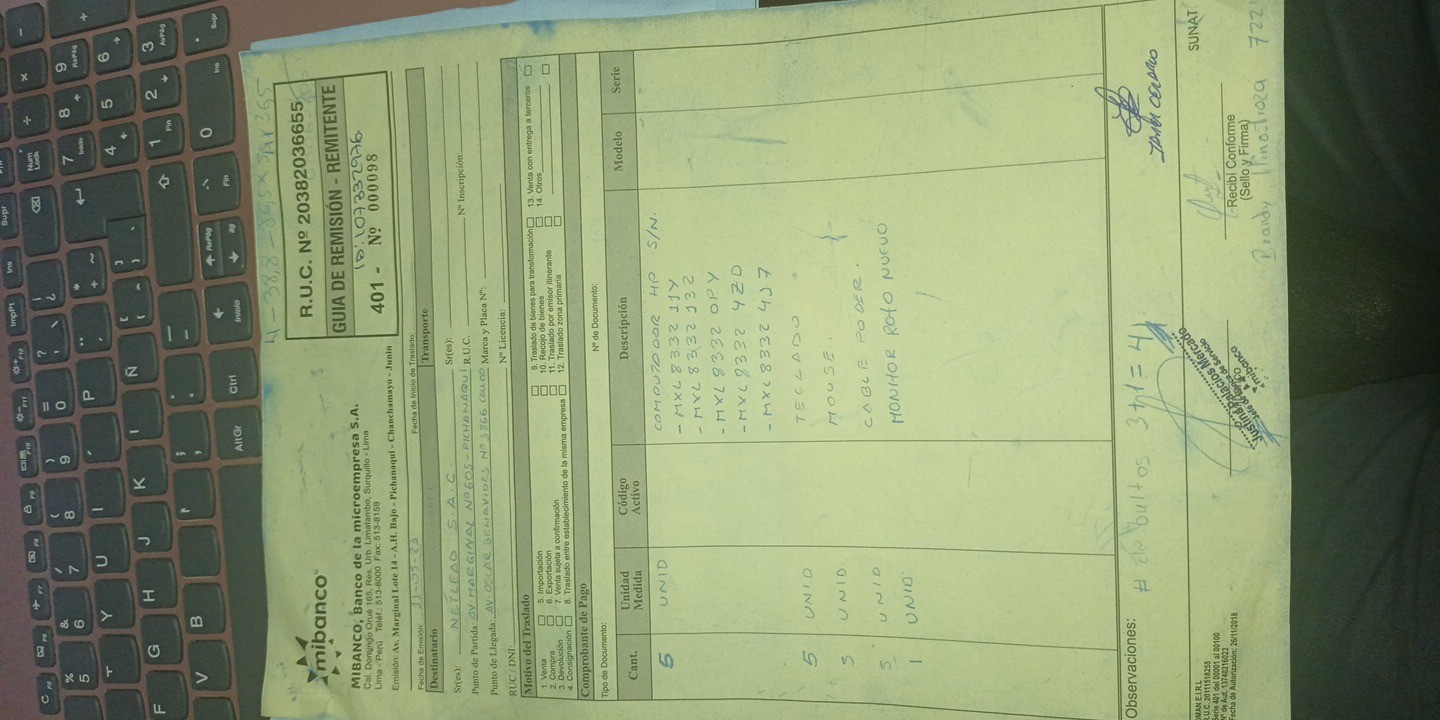 mibanco
MIBANCO, Banco de la microempresa S.A.
Cal. Domingo Orué 165, Res. Urb. Limatambo, Surquillo - Lima
Lima - Perú Teléf.: 513-8000 Fax: 513-8159
Emisión: Av. Marginal Lote 14 - A.H. Bajo - Pichanaqui - Chanchamayo - Junin
R.U.C. Nº 20382036655
GUIA DE REMISIÓN - REMITENTE
401 - Nº 000098
Fecha de Emisión: 11-05-23 Fecha de Inicio de Traslado:
Destinatario Transporte
Sr(es): NETLEAD S.A.C. Sr(es):
Punto de Partida: AV MARGINAL Nº605-PICHANAQUI R.U.C. Nº Inscripción:
Punto de Llegada: AV OSCAR BENAVIDES Nº 3866 CALLAO Marca y Placa Nº:
RUC / DNI Nº Licencia:
Motivo del Traslado
1. Venta 5. Importación 9. Traslado de bienes para transformación 13. Venta con entrega a terceros
2. Compra 6. Exportación 10. Recojo de bienes 14. Otros
3. Devolución 7. Venta sujeta a confirmación 11. Traslado por emisor itinerante
4. Consignación 8. Traslado entre establecimiento de la misma empresa 12. Traslado zona primaria
Comprobante de Pago
Tipo de Documento: Nº de Documento:
Cant. Unidad Medida Código Activo Descripción Modelo Serie
5 UNID COMPUTADOR HP S/N.
- MXL8332 11Y
- MXL8332 132
- MXL8332 0PY
- MXL8332 4ZD
- MXL8332 4J7
5 UNID TECLADO
5 UNID MOUSE.
5 UNID CABLE PODER.
1 UNID. MONITOR ROTO NUEVO
Observaciones: # de bultos 3+1=4
Justina Palacios Mercado
mibanco
Recibí Conforme
(Sello y Firma)
SUNAT
R.U.C. 20111518255
Serie 401 del 00001 al 00100
Nº de Aut. 13740216023
Fecha de Autorización: 26/11/2018